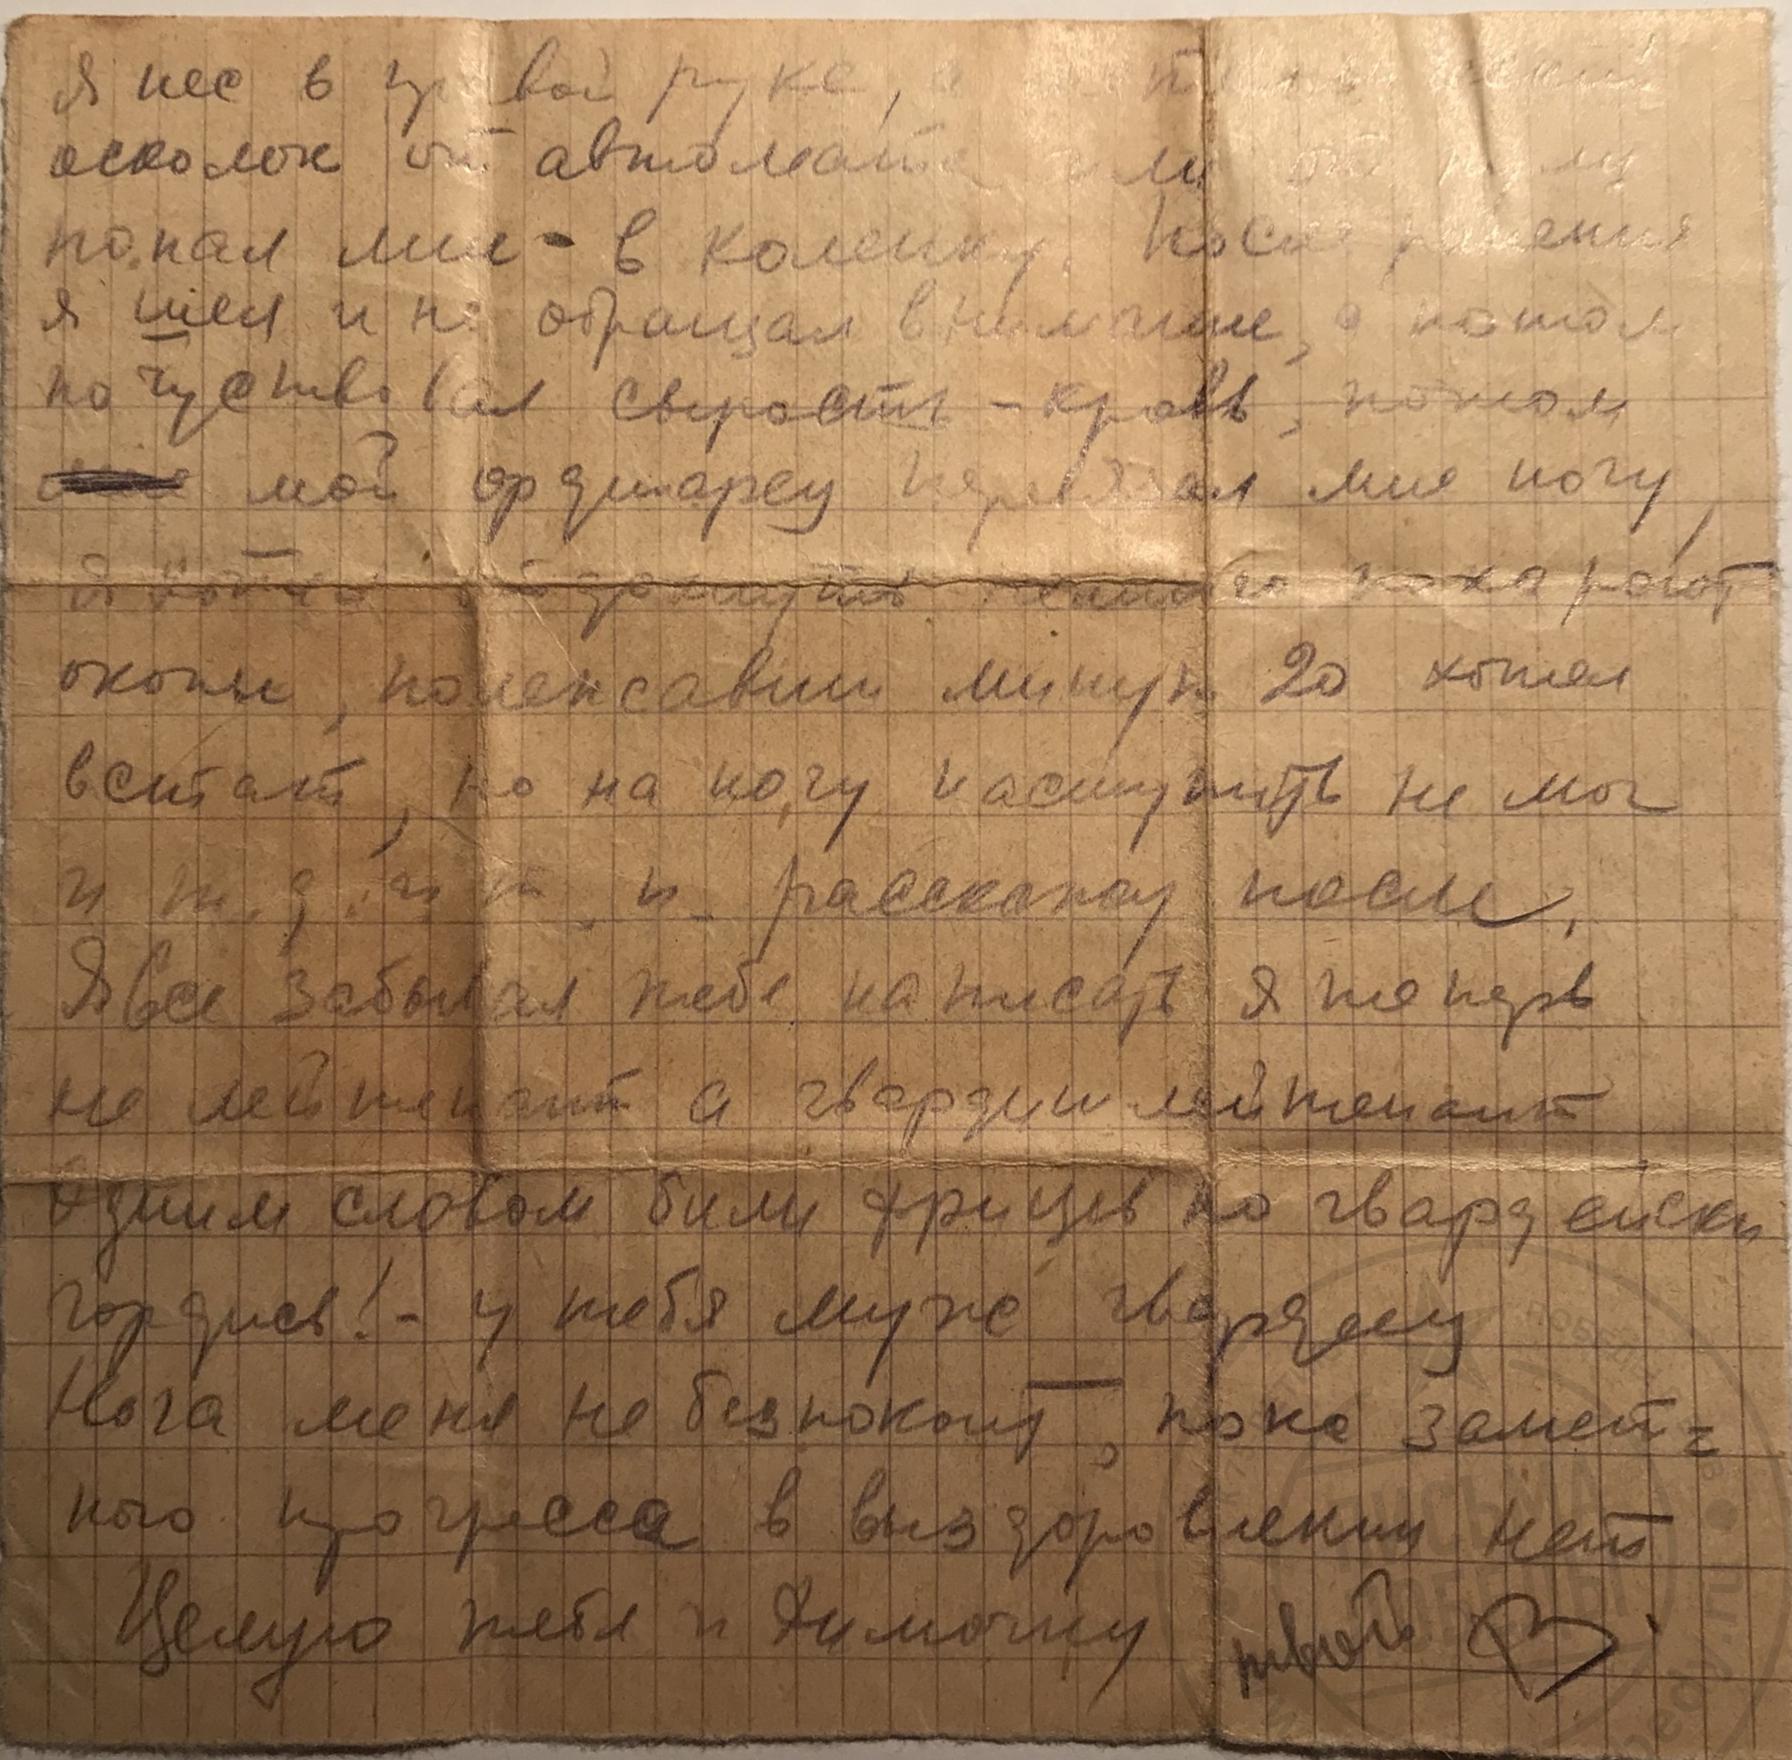 Я нес в правой руке, а
осколок от автомата или от
попал мне - в коленку. После ранения
я шел и не обращал внимание, а потом
почуствовал сырость - кровь, потом
мой ординарец перевязал мне ногу,
немного пока роют
окопы, полежавши минут 20 хотел
встать, но на ногу наступить не мог
и т.д. и т.п. расскажу после.
Я все забывал тебе написать я теперь
не лейтенант а гвардии лейтенант
Одним словом били фрицев по гвардейски
гордись! - у тебя муж гвардеец
Нога меня не безпокоит, пока замет=
ного прогресса в выздоровлении нет
Целую тебя и Димочку твой В.
ПИСЬМА
ПОБЕДЫ